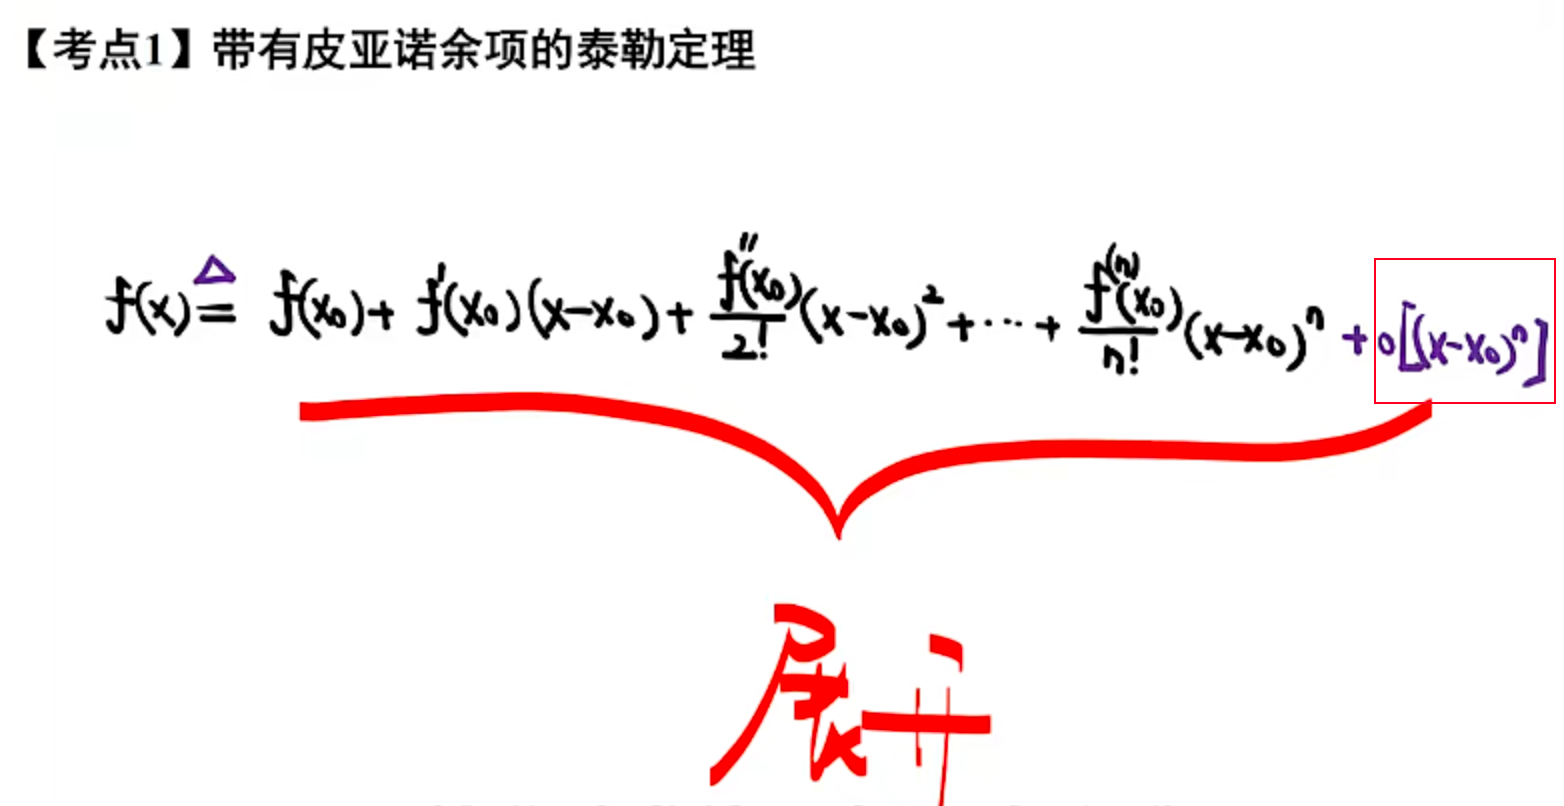 【考点1】带有皮亚诺余项的泰勒定理
f(x) ≜ f(x₀) + f'(x₀)(x-x₀) + f''(x₀)/2! (x-x₀)² + ⋯ + f⁽ⁿ⁾(x₀)/n! (x-x₀)ⁿ + o[(x-x₀)ⁿ]
展开